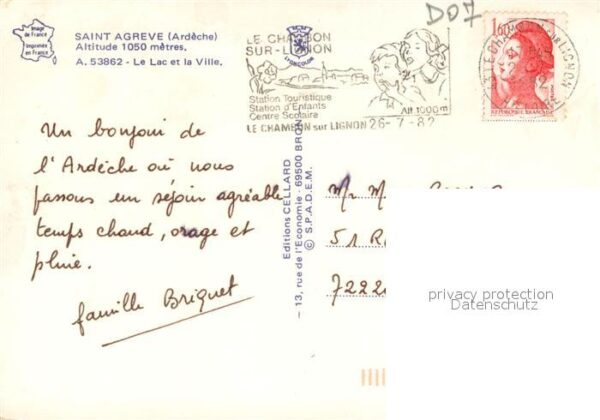 Image
de France
Imprimée
en France
SAINT AGREVE (Ardèche)
Altitude 1050 mètres.
A. 53862 - Le Lac et la Ville.
Un bonjour de
l'Ardèche où nous
passons un séjour agréable
temps chaud, orage et
pluie.
famille Briquet
Editions CELLARD
13, rue de l'Economie - 69500 BRON
© S.P.A.D.E.M.
LYONCOLOR
D07
LE CHAMBON
SUR-LIGNON
Station Touristique
Station d'Enfants
Centre Scolaire
Alt 1000 m
LE CHAMBON sur LIGNON 26-7-82
1,60
Mr M
51 R
7222
privacy protection
Datenschutz